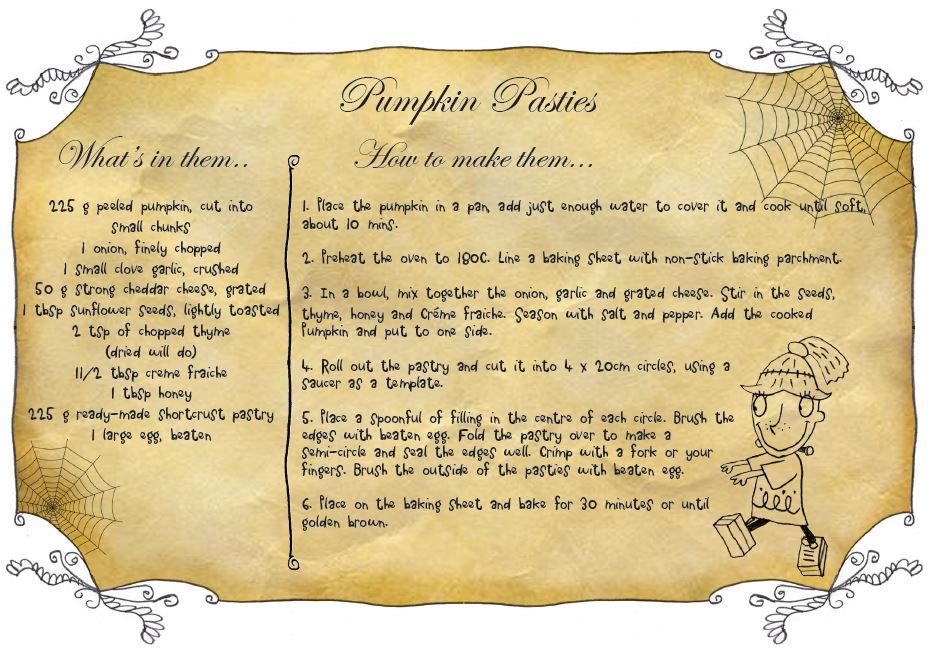 Pumpkin Pasties
What's in them..
225 g peeled pumpkin, cut into
small chunks
1 onion, finely chopped
1 small clove garlic, crushed
50 g strong cheddar cheese, grated
1 tbsp sunflower seeds, lightly toasted
2 tsp of chopped thyme
(dried will do)
11/2 tbsp creme fraiche
1 tbsp honey
225 g ready-made shortcrust pastry
1 large egg, beaten
How to make them...
1. Place the pumpkin in a pan, add just enough water to cover it and cook until soft,
about 10 mins.
2. Preheat the oven to 180C. Line a baking sheet with non-stick baking parchment.
3. In a bowl, mix together the onion, garlic and grated cheese. Stir in the seeds,
thyme, honey and Créme fraiche. Season with salt and pepper. Add the cooked
Pumpkin and put to one side.
4. Roll out the pastry and cut it into 4 x 20cm circles, using a
saucer as a template.
5. Place a spoonful of filling in the centre of each circle. Brush the
edges with beaten egg. Fold the pastry over to make a
semi-circle and seal the edges well. Crimp with a fork or your
fingers. Brush the outside of the pasties with beaten egg.
6. Place on the baking sheet and bake for 30 minutes or until
golden brown.